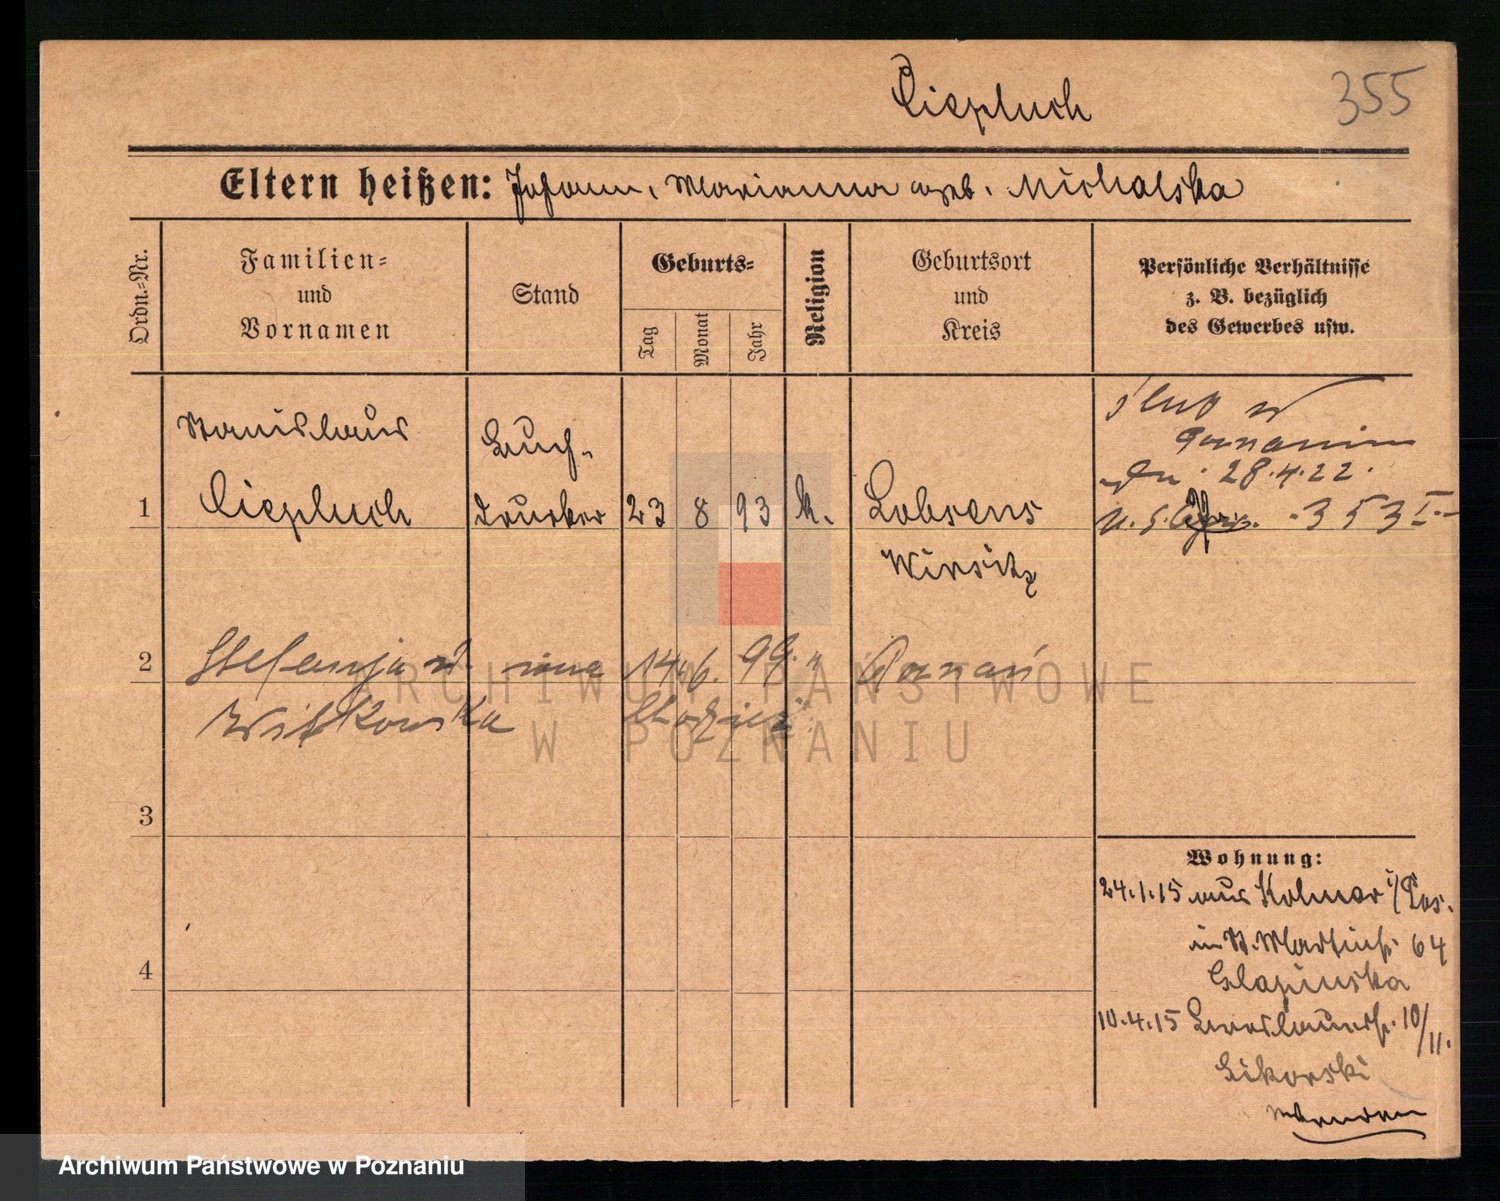 Ciepluch
355
Eltern heißen: Johann, Marianna geb. Michalska
Ordn.-Nr.
Familien- und Vornamen
Stand
Geburts-
Tag
Monat
Jahr
Religion
Geburtsort und Kreis
Persönliche Verhältnisse
z. B. bezüglich
des Gewerbes usw.
Stanislaus
Buch-
1 Ciepluch drucker 23 8 93 k. Lobsens
Wirsitz
ślub w
Poznaniu
dn. 28.4.22.
353 I
2 Stefanja z. żona 14 6. 99. " Poznań
Witkowska
3
4
Wohnung:
24.1.15 aus Kolmar i/Pos.
in St. Martinstr. 64
Glapinska
10.4.15 Breslauerstr. 10/11.
Sikorski
wenden
ARCHIWUM PAŃSTWOWE
W POZNANIU
Archiwum Państwowe w Poznaniu